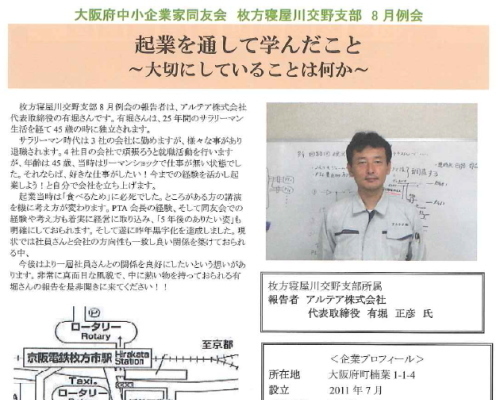 大阪府中小企業家同友会 枚方寝屋川交野支部 8月例会
起業を通して学んだこと
～大切にしていることは何か～
枚方寝屋川交野支部8月例会の報告者は、アルテア株式会社
代表取締役の有堀さんです。有堀さんは、25年間のサラリーマン
生活を経て45歳の時に独立されます。
サラリーマン時代は3社の会社に勤めますが、様々な事があり
退職されます。4社目の会社で頑張ろうと就職活動を行います
が、年齢は45歳、当時はリーマンショックで仕事が無い状態でし
た。それならば、好きな仕事がしたい！今までの経験を活かし起
業しよう！と自分で会社を立ち上げます。
起業当時は「食べるため」に必死でした。ところがある方の講演
を機に考え方が変わります。PTA会長の経験、そして同友会での
経験や考え方も着実に経営に取り込み、「5年後のありたい姿」も
明確にしておられます。そして遂に昨年黒字化を達成しました。現
状では社員さんと会社の方向性も一致し良い関係を築けておられ
る中、
今後はより一層社員さんとの関係を良好にしたいという想いがあ
ります。非常に真面目な風貌で、中に熱い物を持っておられる有
堀さんの報告を是非聞きに来てください！！
枚方寝屋川交野支部所属
報告者 アルテア株式会社
代表取締役 有堀 正彦 氏
ロータリー
Rotary
至京都
京阪電鉄枚方市駅
Hirakata
Station
Taxi
ロータリー
＜企業プロフィール＞
所在地 大阪府町楠葉1-1-4
設立 2011年7月